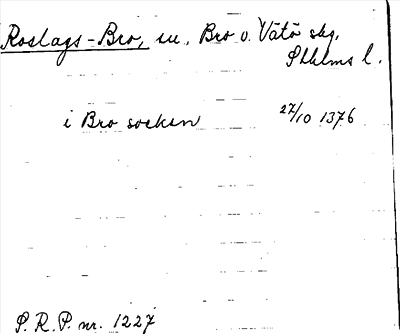 Roslags-Bro, sn, Bro o. Vätö skg,
Sthlms l.
i Bro socken 27/10 1376
P. R. P. nr. 1227